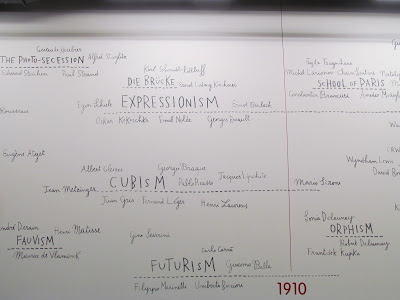 Gertrude Käsebier
THE PHOTO-SECESSION Alfred Stieglitz
Edward Steichen Paul Strand
Karl Schmidt-Rottluff
DIE BRÜCKE Ernst Ludwig Kirchner
Egon Schiele EXPRESSIONISM Ernst Barlach
Oskar Kokoschka Emil Nolde Georges Rouault
Tsuguharu
Michel Larionov Chaim Soutine
SCHOOL OF PARIS
Constantin Brancusi Amedeo
Rousseau
Eugène Atget
Wyndham Lewis
David
Albert Gleizes Georges Braque
Jean Metzinger CUBISM Pablo Picasso Jacques Lipchitz
Mario Sironi
Juan Gris Fernand Léger Henri Laurens
André Derain Henri Matisse
FAUVISM
Maurice de Vlaminck
Gino Severini
Carlo Carrà
FUTURISM Giacomo Balla
Filippo Marinetti Umberto Boccioni
Sonia Delaunay
ORPHISM
Robert Delaunay
František Kupka
1910